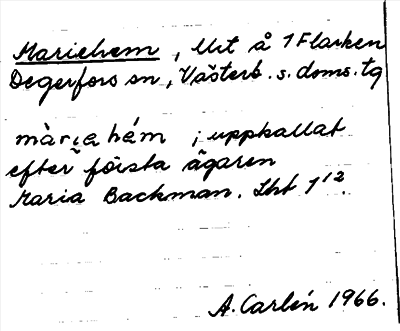 Mariehem, Urt å 1 Flarken
Degerfors sn, Västerb. s. doms. tg
màriahém ; uppkallat
efter första ägaren
Maria Backman. Lht 1¹².
A. Carlén 1966.